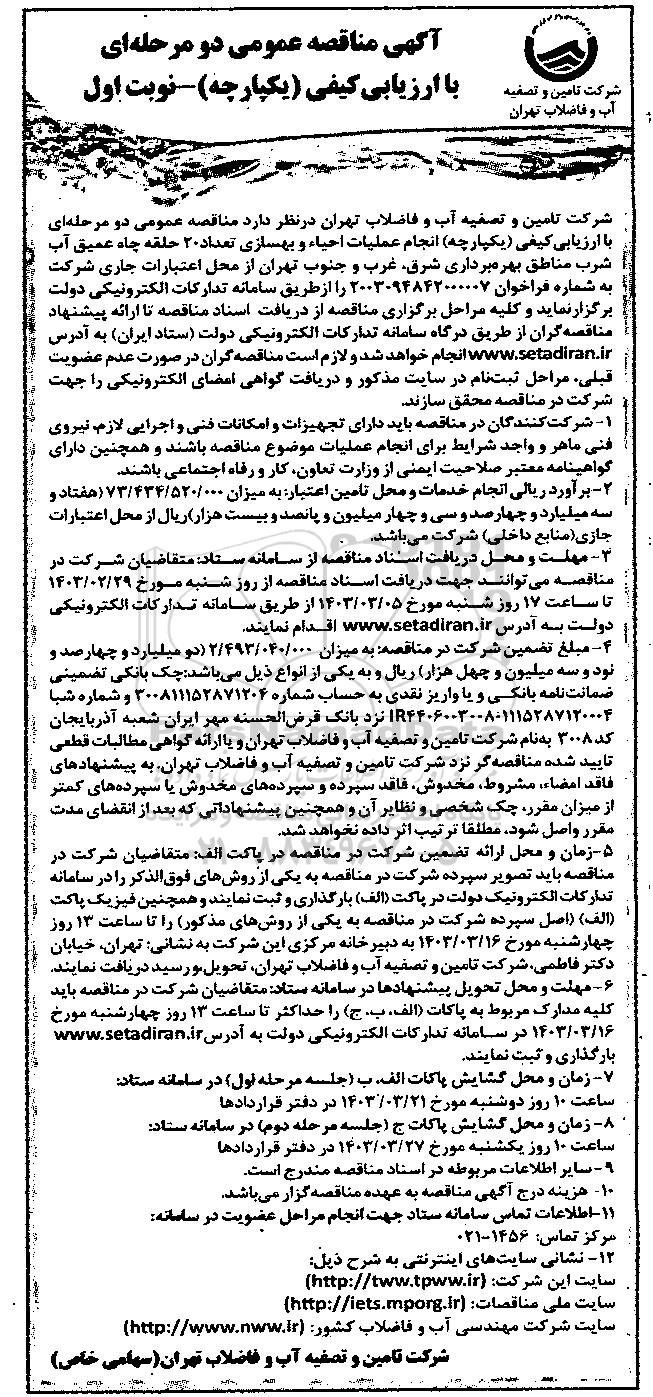 آگهی مناقصه عمومی دو مرحله‌ای
با ارزیابی کیفی (یکپارچه)-نوبت اول
شرکت تامین و تصفیه
آب و فاضلاب تهران
شرکت تامین و تصفیه آب و فاضلاب تهران درنظر دارد مناقصه عمومی دو مرحله‌ای
با ارزیابی‌کیفی (یکپارچه) انجام عملیات احیاء و بهسازی تعداد۲۰ حلقه چاه عمیق آب
شرب مناطق بهره‌برداری شرق، غرب و جنوب تهران از محل اعتبارات جاری شرکت
به شماره فراخوان ۲۰۰۳۰۹۴۸۴۲۰۰۰۰۰۷ را ازطریق سامانه تدارکات الکترونیکی دولت
برگزارنماید و کلیه مراحل برگزاری مناقصه از دریافت اسناد مناقصه تا ارائه پیشنهاد
مناقصه‌گران از طریق درگاه سامانه تدارکات الکترونیکی دولت (ستاد ایران) به آدرس
www.setadiran.ir انجام خواهد شد و لازم است مناقصه‌گران در صورت عدم عضویت
قبلی، مراحل ثبت‌نام در سایت مذکور و دریافت گواهی امضای الکترونیکی را جهت
شرکت در مناقصه محقق سازند.
۱- شرکت‌کنندگان در مناقصه باید دارای تجهیزات و امکانات فنی و اجرایی لازم، نیروی
فنی ماهر و واجد شرایط برای انجام عملیات موضوع مناقصه باشند و همچنین دارای
گواهینامه معتبر صلاحیت ایمنی از وزارت تعاون، کار و رفاه اجتماعی باشند.
۲- برآورد ریالی انجام خدمات و محل تامین اعتبار: به میزان ۷۳/۴۳۴/۵۲۰/۰۰۰ (هفتاد و
سه میلیارد و چهارصد و سی و چهار میلیون و پانصد و بیست هزار)ریال از محل اعتبارات
جاری(منابع داخلی) شرکت می‌باشد.
۳- مهلت و محل دریافت اسناد مناقصه از سامانه ستاد: متقاضیان شرکت در
مناقصه می‌توانند جهت دریافت اسناد مناقصه از روز شنبه مورخ ۱۴۰۳/۰۲/۲۹
تا ساعت ۱۷ روز شنبه مورخ ۱۴۰۳/۰۳/۰۵ از طریق سامانه تدارکات الکترونیکی
دولت به آدرس www.setadiran.ir اقدام نمایند.
۴- مبلغ تضمین شرکت در مناقصه: به میزان ۲/۴۹۳/۰۴۰/۰۰۰ (دو میلیارد و چهارصد و
نود و سه میلیون و چهل هزار) ریال و به یکی از انواع ذیل می‌باشد:چک بانکی تضمینی
ضمانت‌نامه بانکی و یا واریز نقدی به حساب شماره ۳۰۰۸۱۱۱۵۲۸۷۱۲۰۴ و شماره شبا
IR۴۴۰۶۰۰۳۰۰۸۰۱۱۱۵۲۸۷۱۲۰۰۰۴ نزد بانک قرض‌الحسنه مهر ایران شعبه آذربایجان
کد۳۰۰۸ به‌نام شرکت تامین و تصفیه آب و فاضلاب تهران و یا ارائه گواهی مطالبات قطعی
تایید شده مناقصه‌گر نزد شرکت تامین و تصفیه آب و فاضلاب تهران. به پیشنهادهای
فاقد امضاء، مشروط، مخدوش، فاقد سپرده و سپرده‌های مخدوش یا سپرده‌های کمتر
از میزان مقرر، چک شخصی و نظایر آن و همچنین پیشنهاداتی که بعد از انقضای مدت
مقرر واصل شود، مطلقا ترتیب اثر داده نخواهد شد.
۵-زمان و محل ارائه تضمین شرکت در مناقصه در پاکت الف: متقاضیان شرکت در
مناقصه باید تصویر سپرده شرکت در مناقصه به یکی از روش‌های فوق‌الذکر را در سامانه
تدارکات الکترونیک دولت در پاکت (الف) بارگذاری و ثبت نمایند و همچنین فیزیک پاکت
(الف) (اصل سپرده شرکت در مناقصه به یکی از روش‌های مذکور) را تا ساعت ۱۳ روز
چهارشنبه مورخ ۱۴۰۳/۰۳/۱۶ به دبیرخانه مرکزی این شرکت به نشانی: تهران، خیابان
دکتر فاطمی،شرکت تامین و تصفیه آب و فاضلاب تهران، تحویل و رسید دریافت نمایند.
۶- مهلت و محل تحویل پیشنهادها در سامانه ستاد: متقاضیان شرکت در مناقصه باید
کلیه مدارک مربوط به پاکات (الف، ب، ج) را حداکثر تا ساعت ۱۳ روز چهارشنبه مورخ
۱۴۰۳/۰۳/۱۶ در سامانه تدارکات الکترونیکی دولت به آدرس www.setadiran.ir
بارگذاری و ثبت نمایند.
۷- زمان و محل گشایش پاکات الف، ب (جلسه مرحله اول) در سامانه ستاد:
ساعت ۱۰ روز دوشنبه مورخ ۱۴۰۳/۰۳/۲۱ در دفتر قراردادها
۸- زمان و محل گشایش پاکات ج (جلسه مرحله دوم) در سامانه ستاد:
ساعت ۱۰ روز یکشنبه مورخ ۱۴۰۳/۰۳/۲۷ در دفتر قراردادها
۹- سایر اطلاعات مربوطه در اسناد مناقصه مندرج است.
۱۰- هزینه درج آگهی مناقصه به عهده مناقصه‌گزار می‌باشد.
۱۱-اطلاعات تماس سامانه ستاد جهت انجام مراحل عضویت در سامانه:
مرکز تماس: ۱۴۵۶-۰۲۱
۱۲- نشانی سایت‌های اینترنتی به شرح ذیل:
سایت این شرکت: (http://tww.tpww.ir)
سایت ملی مناقصات: (http://iets.mporg.ir)
سایت شرکت مهندسی آب و فاضلاب کشور: (http://www.nww.ir)
شرکت تامین و تصفیه آب و فاضلاب تهران(سهامی خاص)